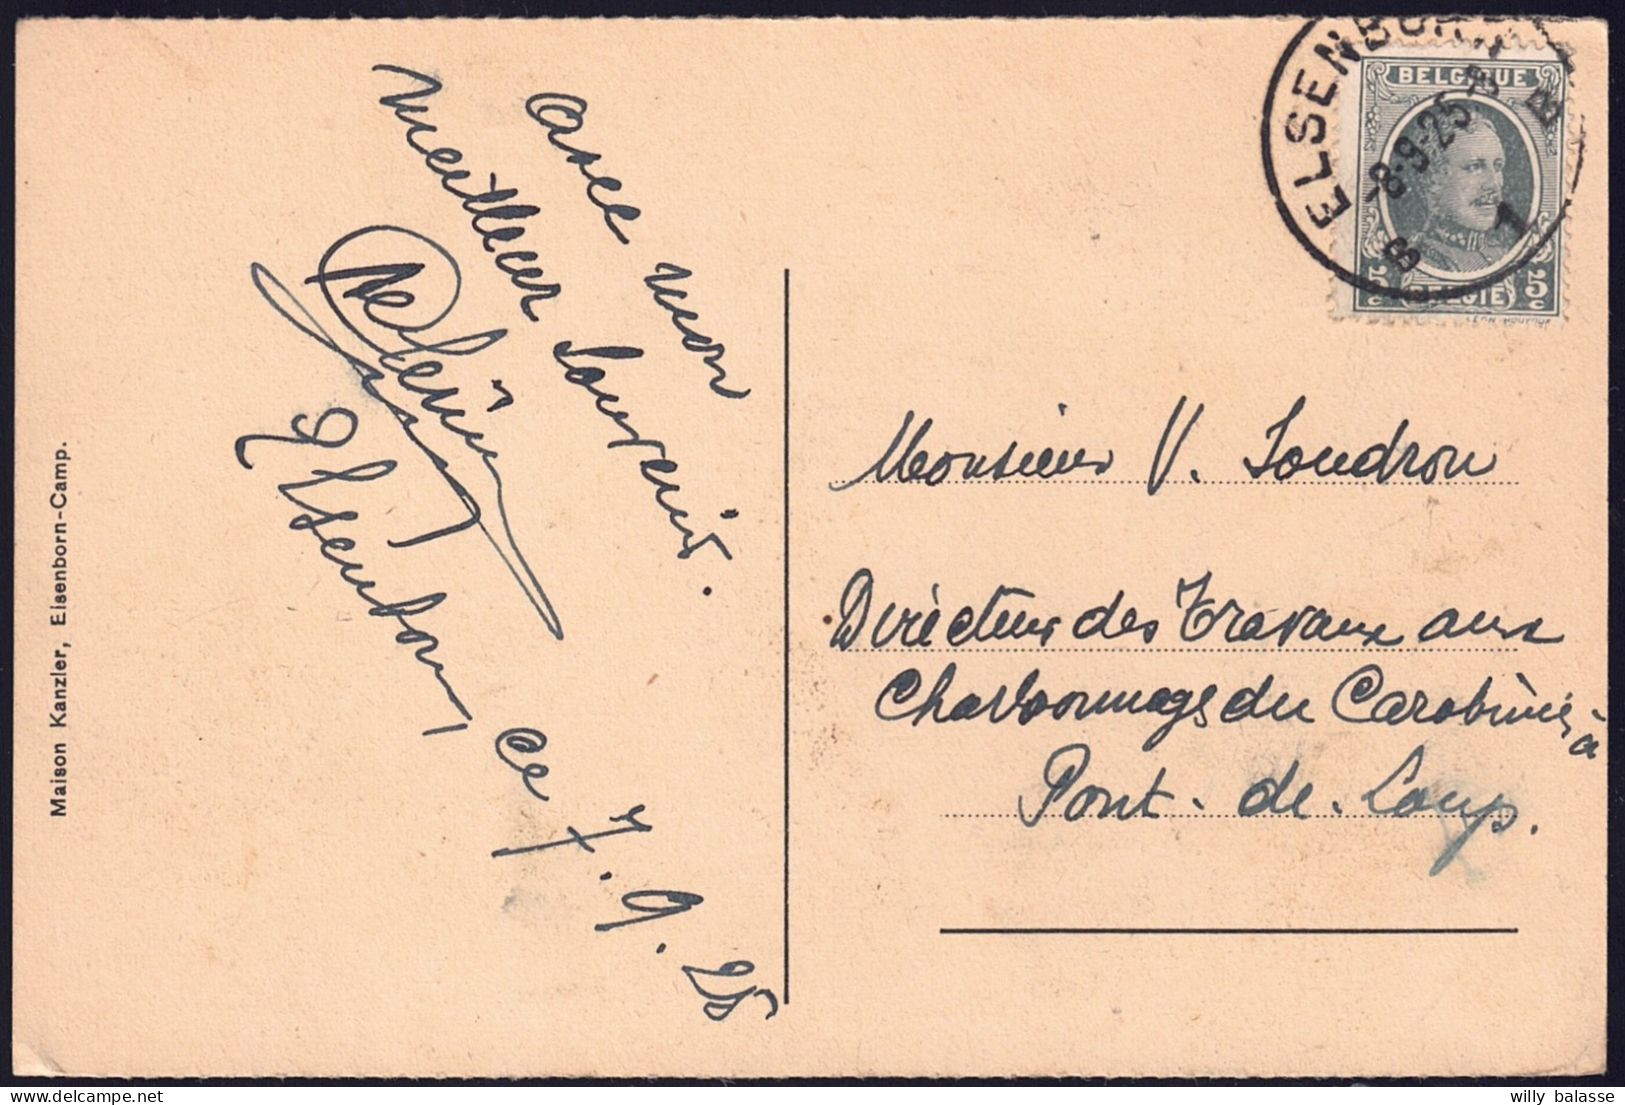 Avec mon
meilleur souvenir.
Elsenborn, ce 7.9.25
Maison Kanzler, Elsenborn-Camp.
ELSENBORN
-8-9-25
B 1
BELGIQUE
5c 5c
BELGIE
Monsieur V. Soudron
Directeur des Travaux aux
Charbonnages du Carabinier à
Pont-de-Loup.
willy balasse